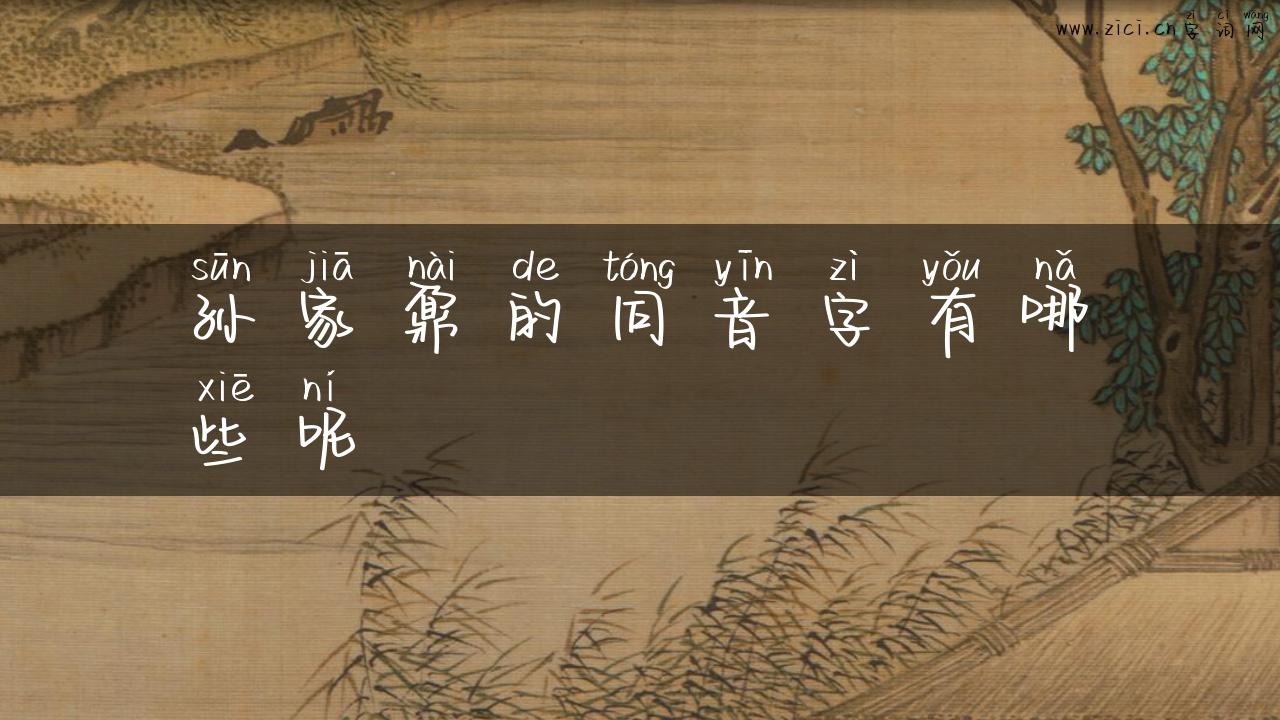 www.zici.cn zì cí wǎng 字词网
sūn jiā nài de tóng yīn zì yǒu nǎ
孙家鼐的同音字有哪
xiē ní
些呢